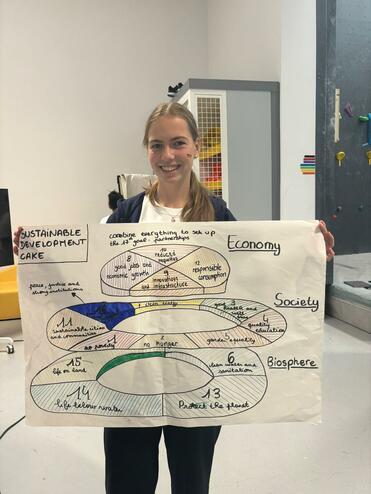 SUSTAINABLE
DEVELOPMENT
CAKE
combine everything to set up
the 17th goal: partnerships
Economy
8
good jobs and
economic growth
10
reduced
inequalities
9
innovations
and infrastructure
12
responsible
consumption
peace, justice and
strong institutions
Society
16
7
clean energy
3
good
health and
well
11
sustainable cities
and communities
4
quality
education
1
no poverty
2
no hunger
5
gender equality
Biosphere
15
life on land
6
clean water and
sanitation
14
life below water
13
Protect the planet